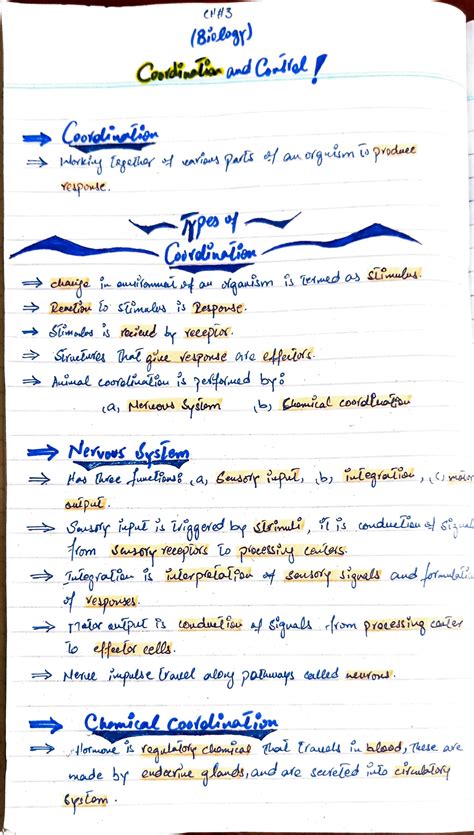 CH#3
(Biology)
Coordination and Control!
⇒ Coordination
⇒ Working together of various parts of an orgnism to produce
response.
Types of
Coordination
⇒ change in environmat of an organism is termed as stimulus.
⇒ Reaction to stimulus is Response.
⇒ Stimulus is recived by receptor.
⇒ Structures that give response are effectors.
⇒ Animal coordination is performed by:
(a) Nervous System (b) Chemical coordination
⇒ Nervous System
⇒ Has three functions: (a) Sensory input, (b) integration, (c) motor
output.
⇒ Sensory input is triggered by stimuli, it is conduction of signal
from sensory receptors to processing centers.
⇒ Integration is interpretation of sensory signals and formulatio
of responses.
⇒ Motor output is conduction of signals from processing center
to effector cells.
⇒ Nerve impulse travel along pathways called neurons.
⇒ Chemical coordination
⇒ Hormone is regulatory chemical that travels in blood, These are
made by endocrine glands, and are secreted into circulatory
system.